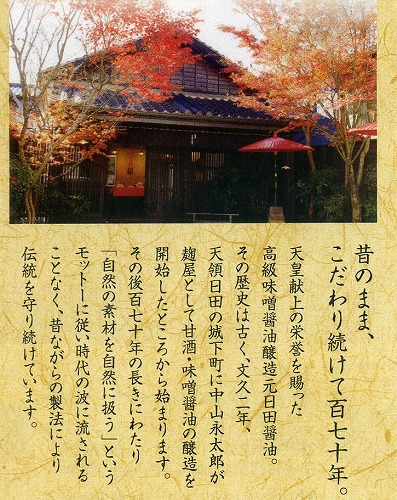 昔のまま、
こだわり続けて百七十年。
天皇献上の栄誉を賜った
高級味噌醤油醸造元日田醤油。
その歴史は古く、文久二年、
天領日田の城下町に中山永太郎が
麹屋として甘酒・味噌醤油の醸造を
開始したところから始まります。
その後百七十年の長きにわたり
「自然の素材を自然に扱う」という
モットーに従い時代の波に流される
ことなく、昔ながらの製法により
伝統を守り続けています。